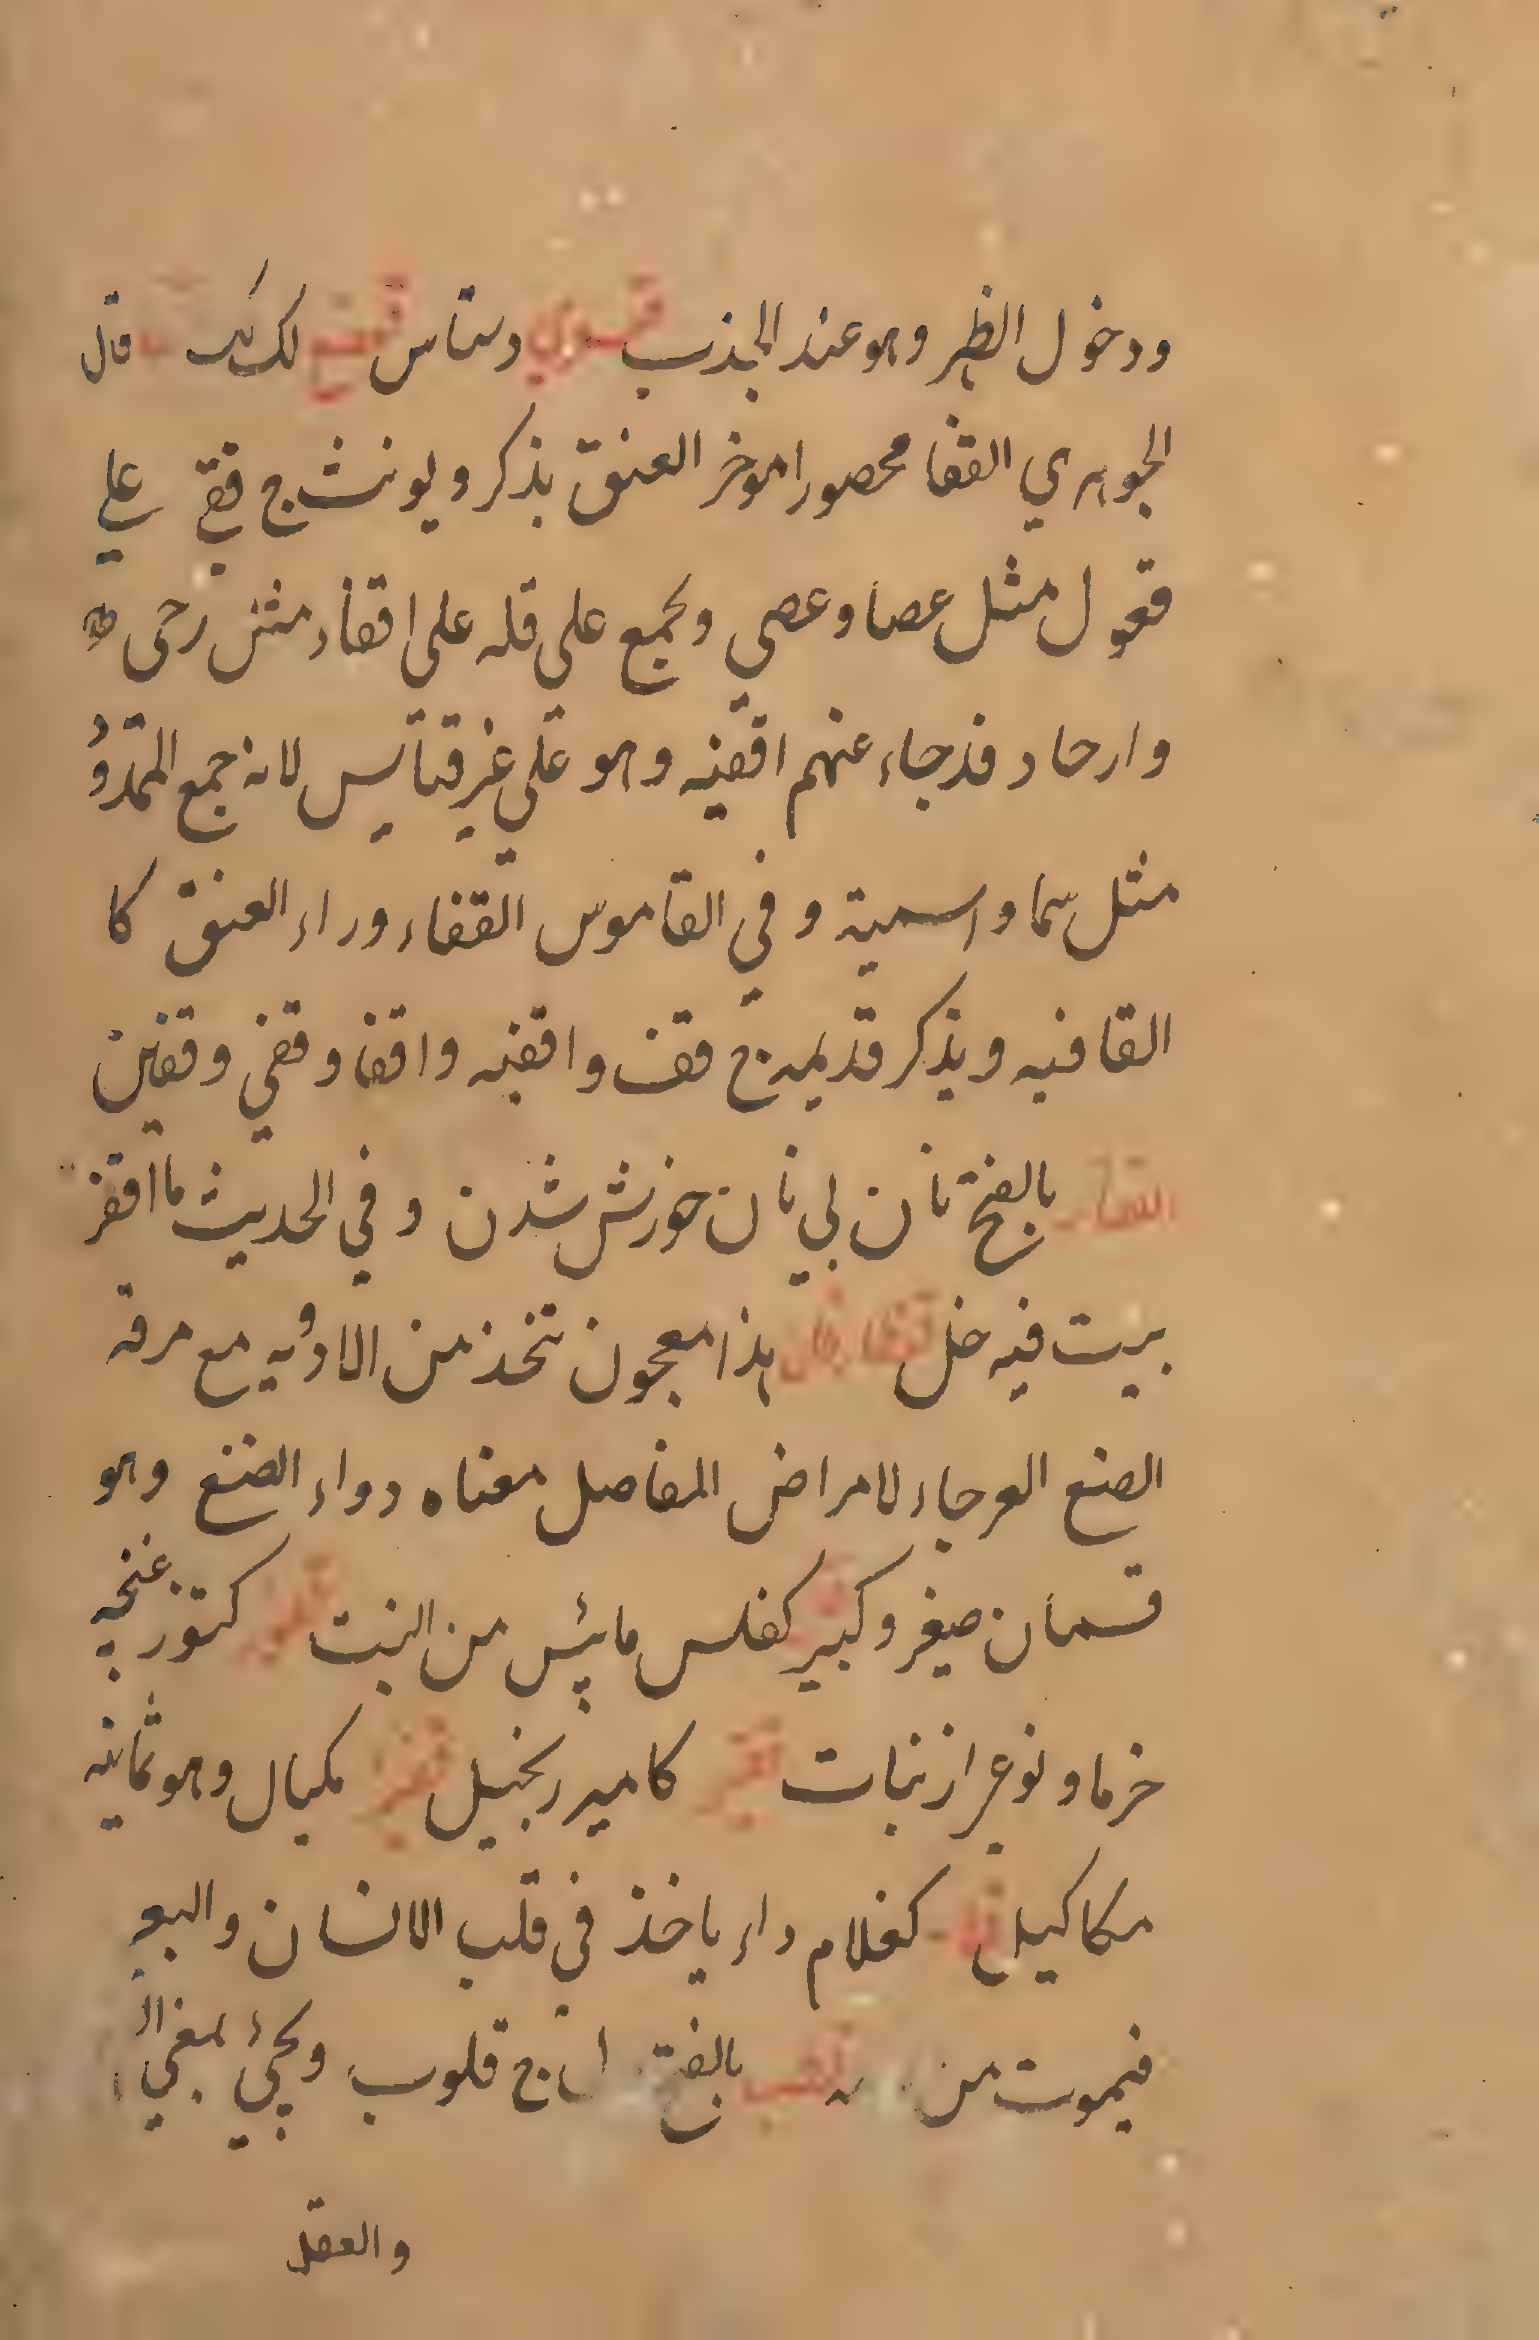 ودخول الظهر وهو عند الجذب قسوي دستاس لک لک قال
الجوهري القفا محصورا موخر العنق یذکر و یونث ج قفي علي
فعول مثل عصا و عصي و یجمع علی قله علی اقفاء مثل رحی
وارحاد قد جاء عنهم اقفیه وهو علي غیر قیاس لانه جمع الممدود
مثل سما و اسمیة و في القاموس القفاء وراء العنق کا
القافیه و یذکر قدیمه ج قف و اقفیه و اقفا و قفي و قفین
القفار بالفتح نان بي نان خورش شدن و في الحدیث ما اقفر
بیت فیه خل هذا معجون تتخذ من الادویه مع مرقه
الضبع العرجاء لامراض المفاصل معناه دواء الضبع وهو
قسمان صغیر و کبیر کفلس ما یبس من النبت قفور کتنور غنچه
خرما و نوعي از نبات قفیر کامیر زنجبیل قفیز مکیال وهو ثمانیه
مکاکیل کغلام داء یاخذ في قلب الانسان و البعیر
فیموت من قلب بالفتح ج قلوب و یجيء بمعني
والعقل